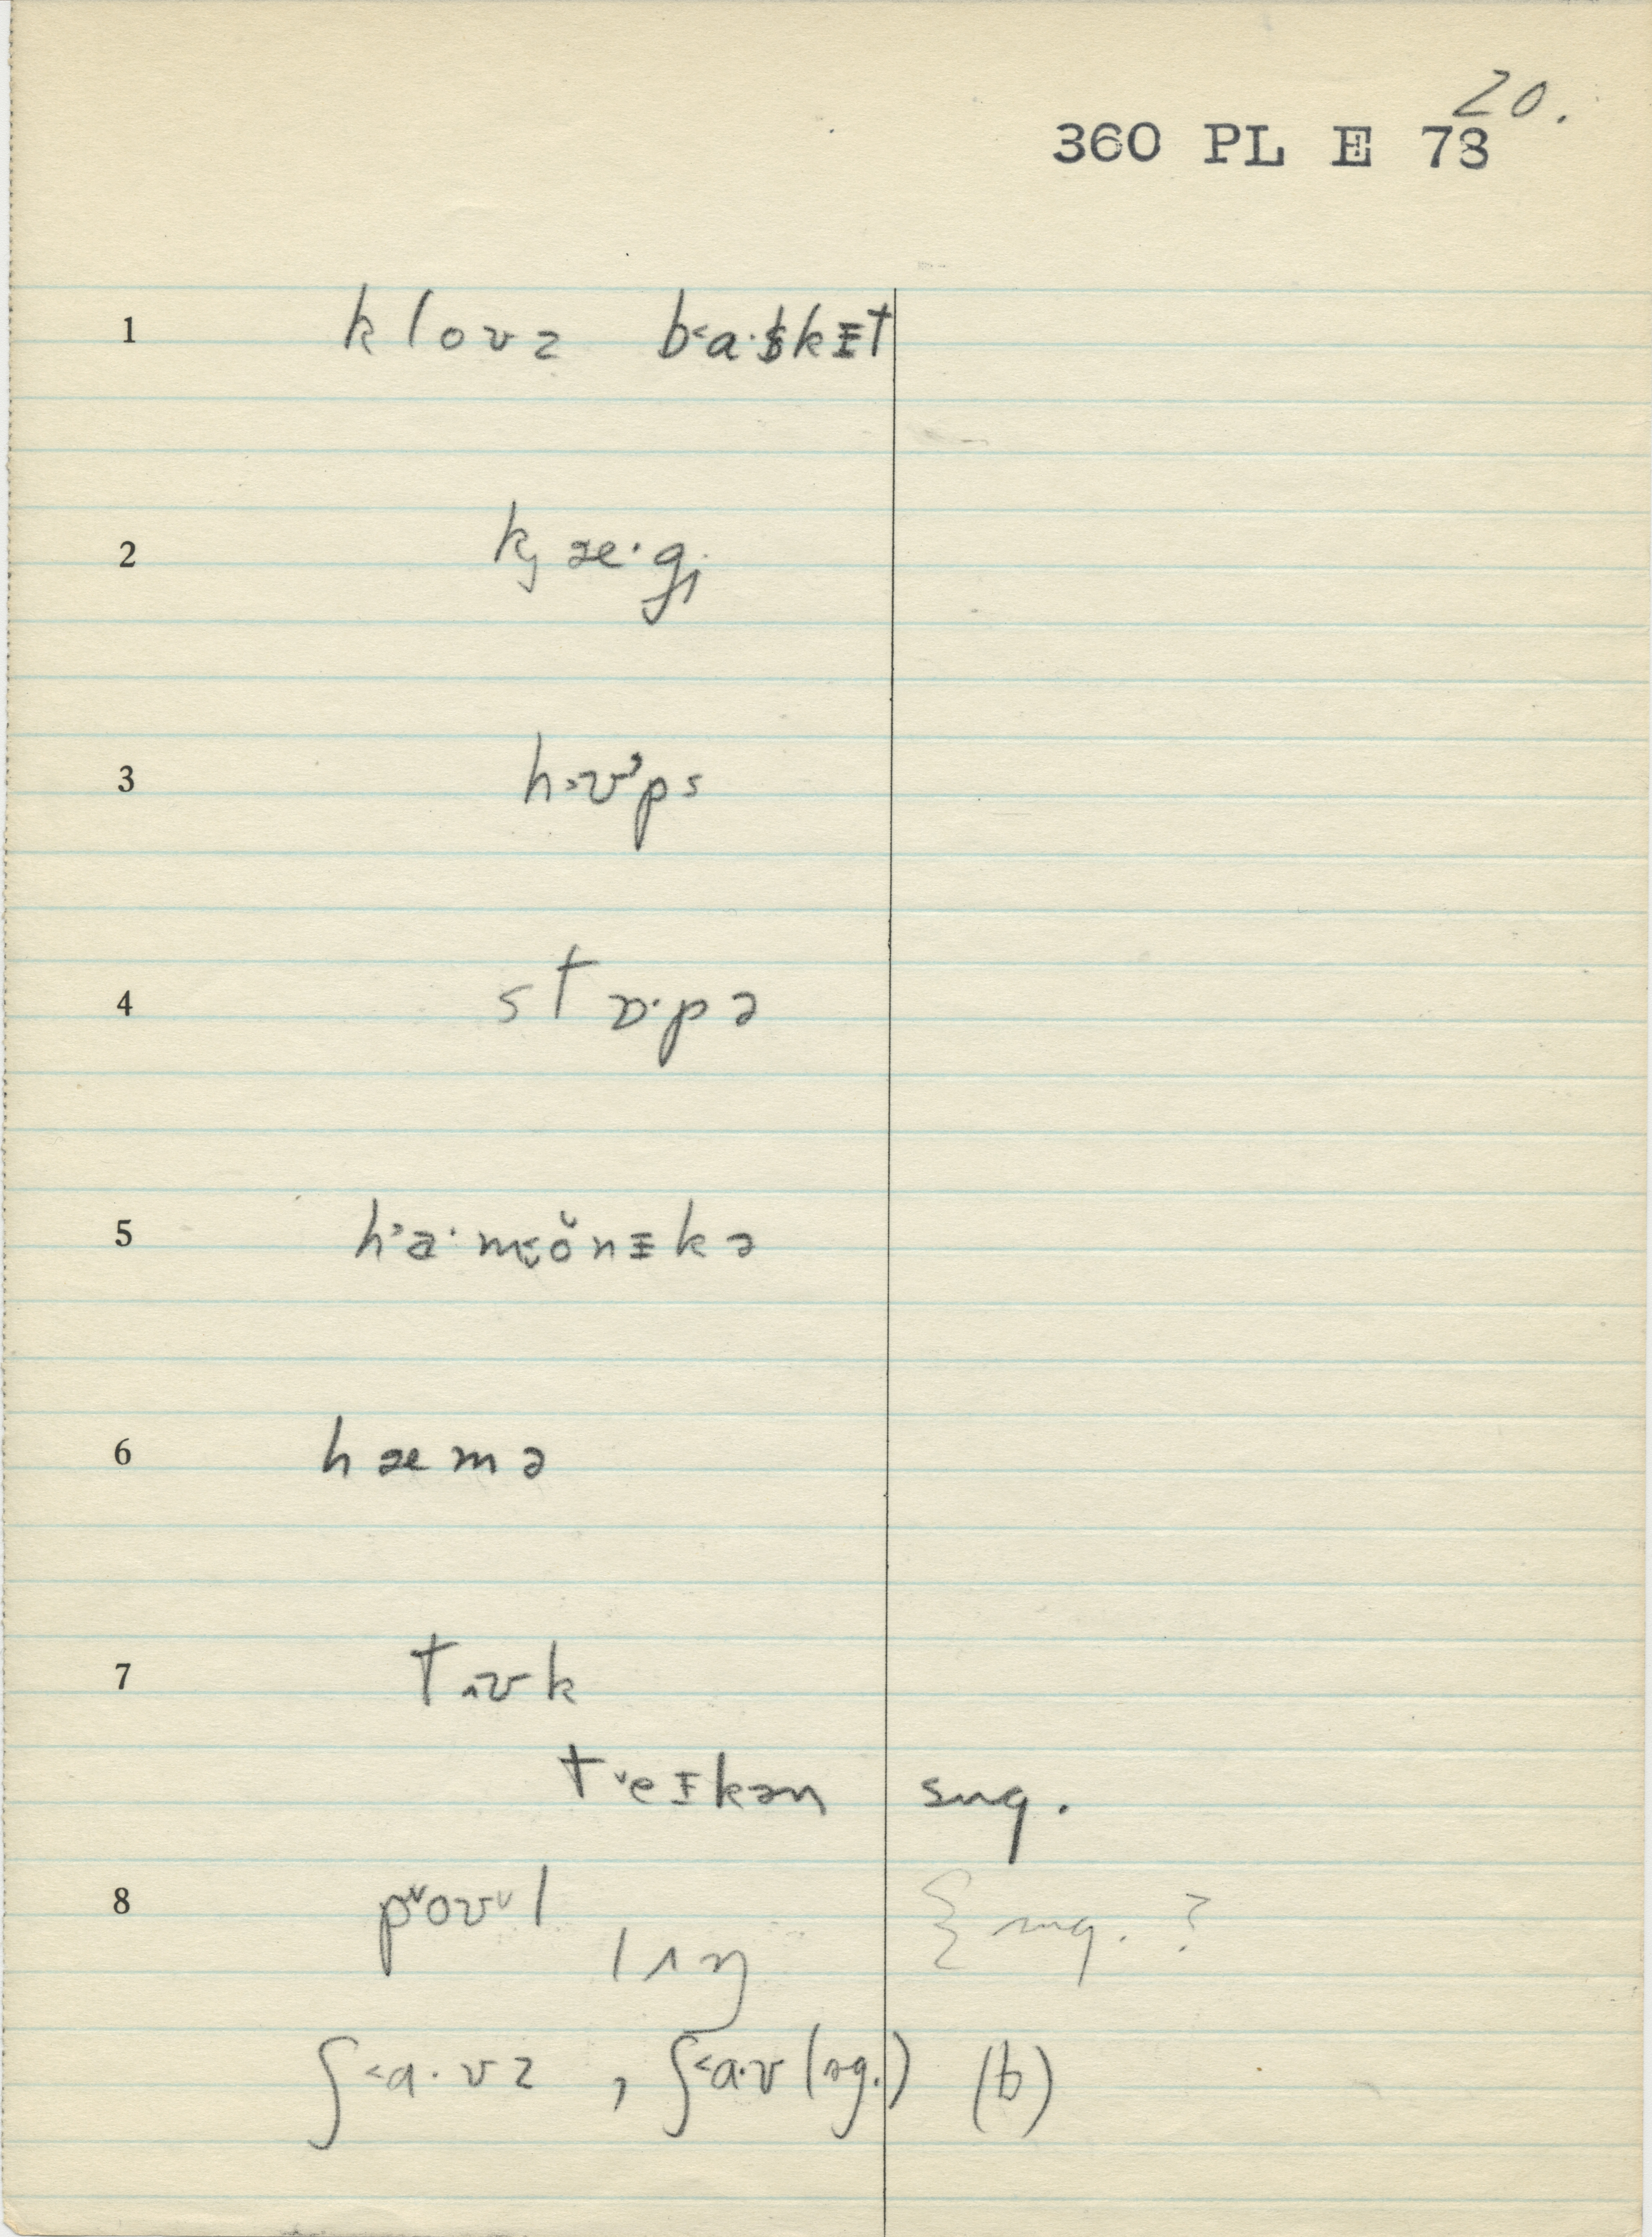 20.
360 PL E 73
1 kloʊz b˂a·skɪt
2 kj æ·gj
3 h˃ʊ˒ps
4 stɒ·pə
5 h˒a·m˂ŏnɪkə
6 hæmə
7 tʌʊk
t˅eɪkən sug.
8 p˅oʊ˅l
lʌŋ { sug. ?
ʃ˂a·vz , ʃ˂a·v (sg.) (b)